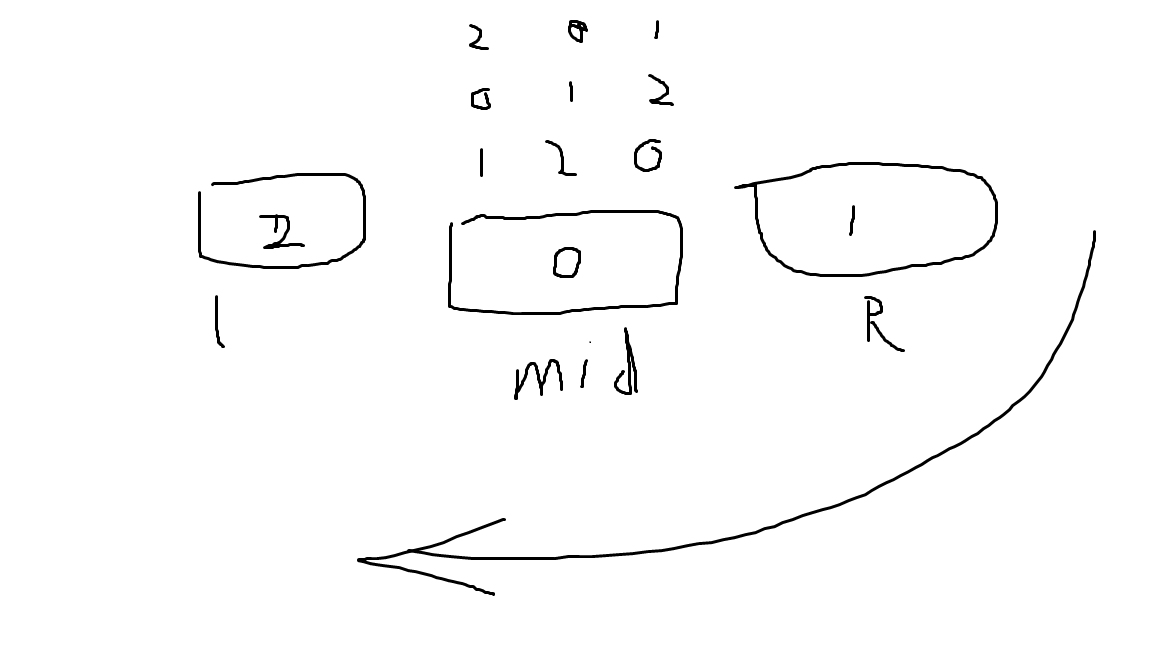 2 0 1
0 1 2
1 2 0
2 0 1
l mid R